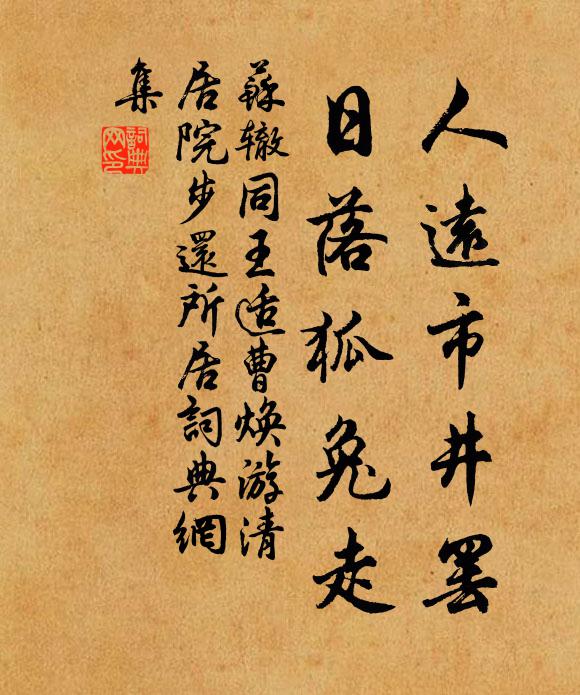 人遠市井罢
日落狐兔走
蘇辙同王适曹焕游清
居院步還所居詞典網
集
詞典
网印